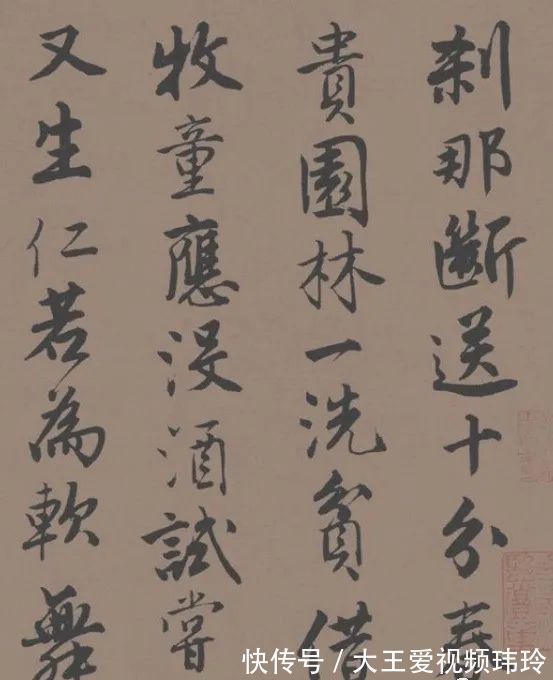 刹那斷送十分春
貴園林一洗貧借
牧童應没酒試嘗
又生仁若為軟舞
快传号 / 大王爱视频玮玲